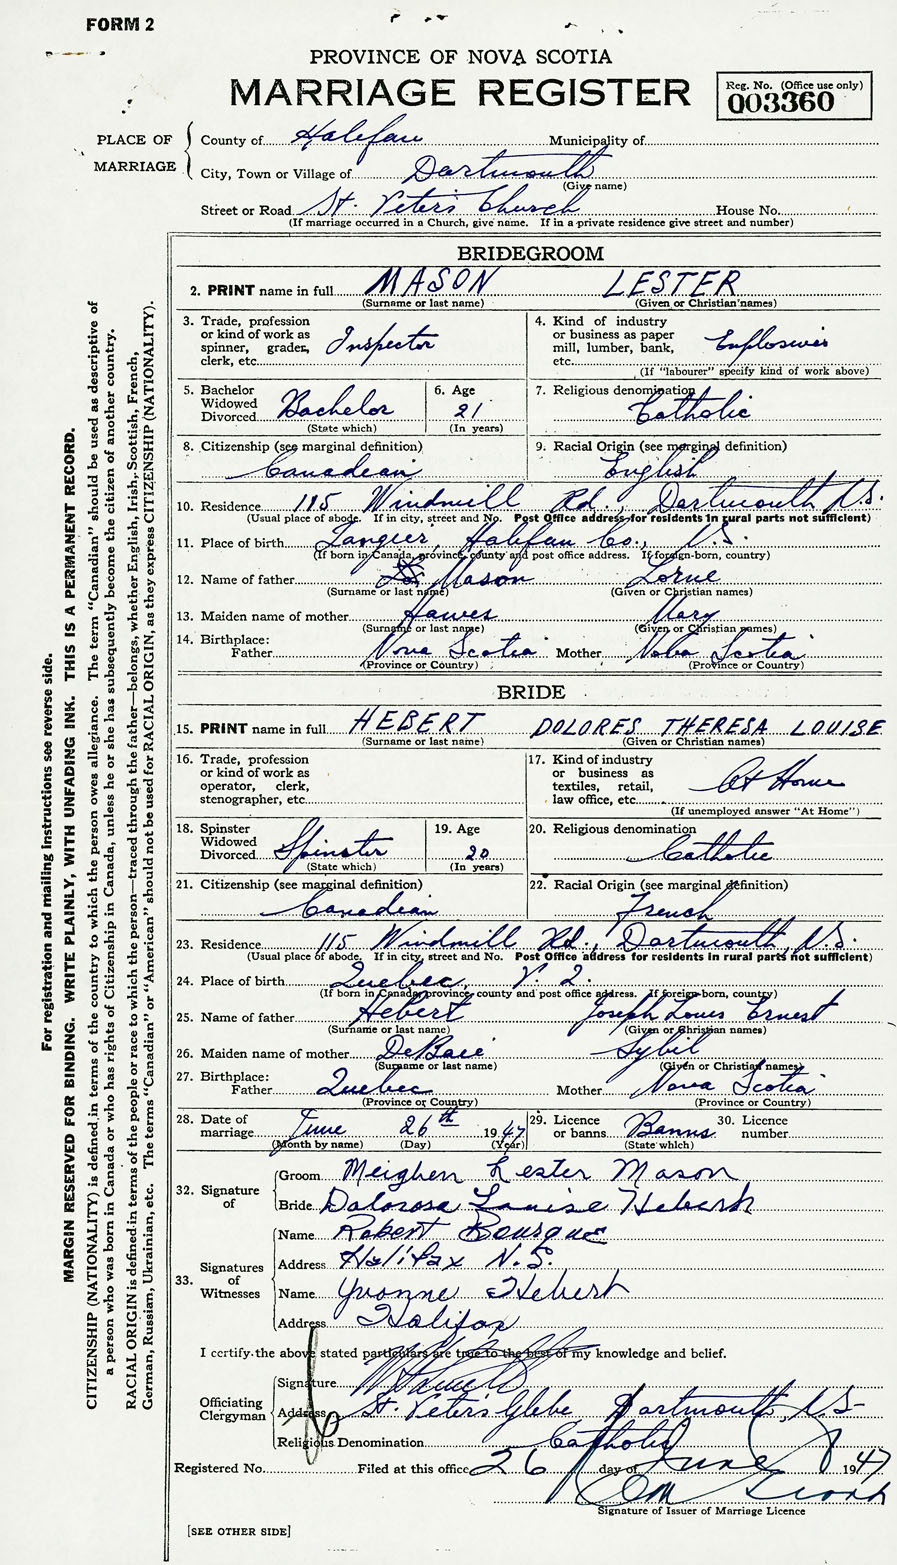 FORM 2
PROVINCE OF NOVA SCOTIA
MARRIAGE REGISTER
Reg. No. (Office use only)
003360
PLACE OF MARRIAGE
County of Halifax Municipality of
City, Town or Village of Dartmouth
(Give name)
Street or Road St. Peter's Church House No.
(If marriage occurred in a Church, give name. If in a private residence give street and number)
BRIDEGROOM
2. PRINT name in full MASON LESTER
(Surname or last name) (Given or Christian names)
3. Trade, profession or kind of work as spinner, grader, clerk, etc. Inspector
4. Kind of industry or business as paper mill, lumber, bank, etc. Explosives
(If "labourer" specify kind of work above)
5. Bachelor Widowed Divorced Bachelor
(State which)
6. Age 21
(In years)
7. Religious denomination Catholic
8. Citizenship (see marginal definition) Canadian
9. Racial Origin (see marginal definition) English
10. Residence 115 Windmill Rd., Dartmouth N.S.
(Usual place of abode. If in city, street and No. Post Office address for residents in rural parts not sufficient)
11. Place of birth Tangier, Halifax Co., N.S.
(If born in Canada, province, county and post office address. If foreign-born, country)
12. Name of father Mason Lorne
(Surname or last name) (Given or Christian names)
13. Maiden name of mother Hawes Mary
(Surname or last name) (Given or Christian names)
14. Birthplace:
Father Nova Scotia Mother Nova Scotia
(Province or Country) (Province or Country)
BRIDE
15. PRINT name in full HEBERT DOLORES THERESA LOUISE
(Surname or last name) (Given or Christian names)
16. Trade, profession or kind of work as operator, clerk, stenographer, etc.
17. Kind of industry or business as textiles, retail, law office, etc. At Home
(If unemployed answer "At Home")
18. Spinster Widowed Divorced Spinster
(State which)
19. Age 20
(In years)
20. Religious denomination Catholic
21. Citizenship (see marginal definition) Canadian
22. Racial Origin (see marginal definition) French
23. Residence 115 Windmill Rd., Dartmouth, N.S.
(Usual place of abode. If in city, street and No. Post Office address for residents in rural parts not sufficient)
24. Place of birth Quebec, P.Q.
(If born in Canada, province, county and post office address. If foreign-born, country)
25. Name of father Hebert Joseph Louis Ernest
(Surname or last name) (Given or Christian names)
26. Maiden name of mother DeBaie Sybil
(Surname or last name) (Given or Christian names)
27. Birthplace:
Father Quebec Mother Nova Scotia
(Province or Country) (Province or Country)
28. Date of marriage June 26th 1947
(Month by name) (Day) (Year)
29. Licence or banns Banns
(State which)
30. Licence number
32. Signature of
Groom Meighen Lester Mason
Bride Dolorosa Louise Hebert
33. Signatures of Witnesses
Name Robert Bourque
Address Halifax N.S.
Name Yvonne Hebert
Address Halifax
I certify the above stated particulars are true to the best of my knowledge and belief.
Officiating Clergyman
Signature
Address St. Peter's Glebe Dartmouth, N.S.
Religious Denomination Catholic
Registered No. Filed at this office 26 day of June 1947
Signature of Issuer of Marriage Licence
[SEE OTHER SIDE]
For registration and mailing instructions see reverse side.
MARGIN RESERVED FOR BINDING. WRITE PLAINLY, WITH UNFADING INK. THIS IS A PERMANENT RECORD.
CITIZENSHIP (NATIONALITY) is defined in terms of the country to which the person owes allegiance. The term "Canadian" should be used as descriptive of
a person who was born in Canada or who has rights of Citizenship in Canada, unless he or she has subsequently become the citizen of another country.
RACIAL ORIGIN is defined in terms of the people or race to which the person—traced through the father—belongs, whether English, Irish, Scottish, French,
German, Russian, Ukrainian, etc. The terms "Canadian" or "American" should not be used for RACIAL ORIGIN, as they express CITIZENSHIP (NATIONALITY).